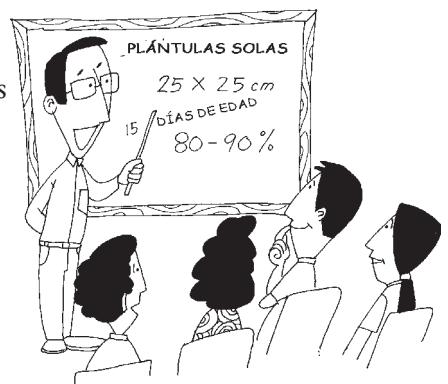 s
PLÁNTULAS SOLAS
25 X 25 cm
15 DÍAS DE EDAD
80-90%